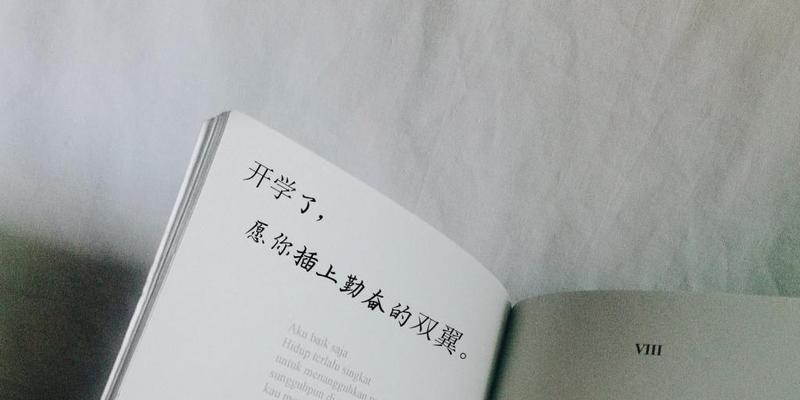 开学了，
愿你插上勤奋的双翼。
Aku baik saja
Hidup terlalu singkat
untuk menangguhkan
sungguhpun
kau
VIII